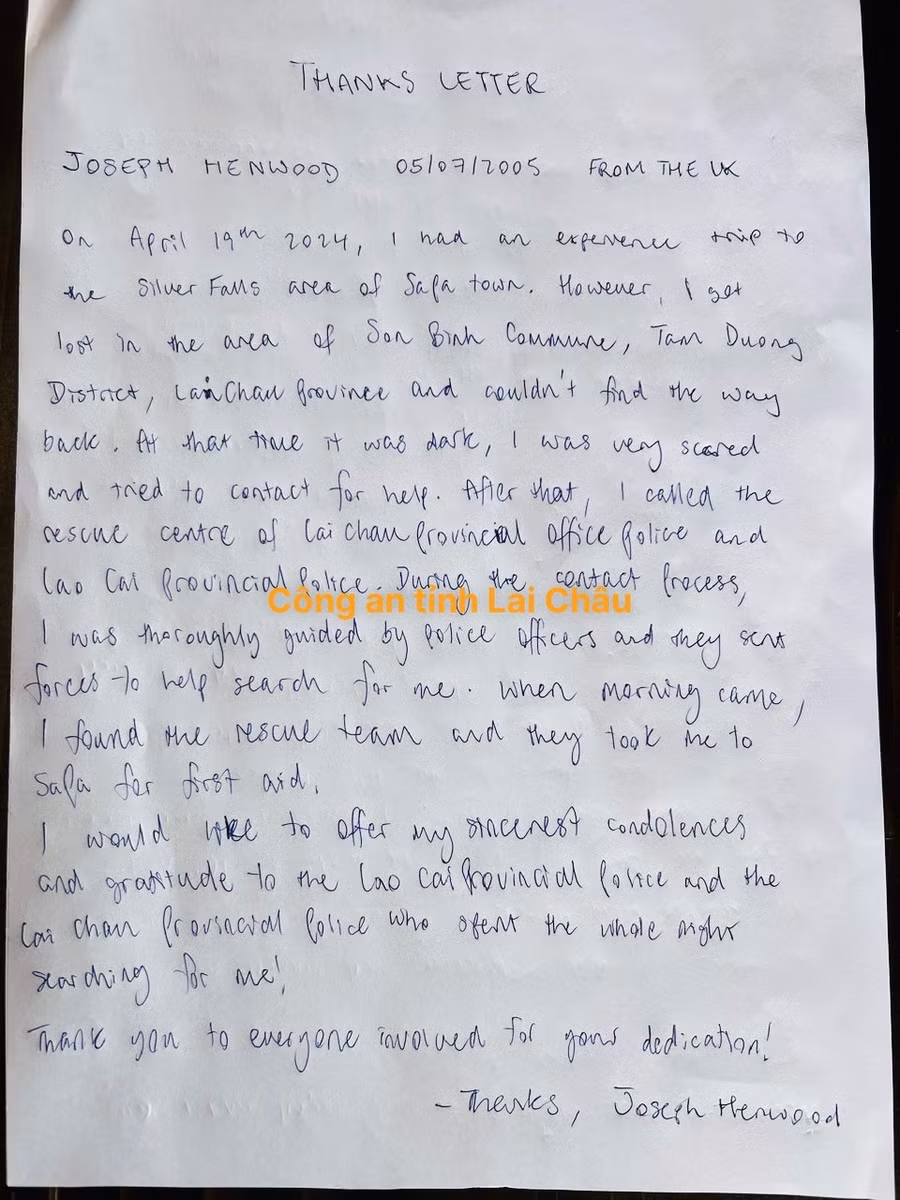 THANKS LETTER
JOSEPH HENWOOD 05/07/2005 FROM THE UK
On April 19th 2024, I had an experience trip to
the Silver Falls area of Sapa town. However, I got
lost in the area of Son Binh Commune, Tam Duong
District, Lai Chau Province and couldn't find the way
back. At that time it was dark, I was very scared
and tried to contact for help. After that, I called the
rescue centre of Lai Chau Provincial Office Police and
Lao Cai Provincial Police. During the contact process,
Công an tỉnh Lai Châu
I was thoroughly guided by police officers and they sent
forces to help search for me. When morning came,
I found the rescue team and they took me to
Sapa for first aid.
I would like to offer my sincerest condolences
and gratitude to the Lao Cai Provincial Police and the
Lai Chau Provincial Police who spent the whole night
searching for me!
Thank you to everyone involved for your dedication!
- Thanks, Joseph Henwood